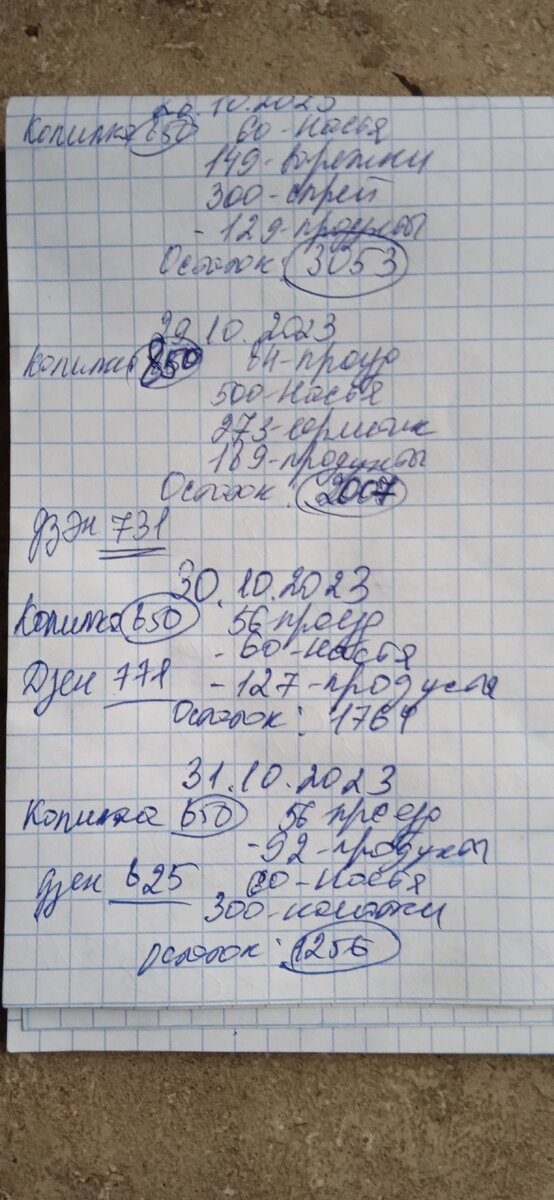 28.10.2023
Копилка 650 60-Настя
149-варежки
300-спрей
-129-продукты
Остаток: 3053
29.10.2023
Копилка 650 84-проезд
500-Настя
273-
189-продукты
Остаток: 2007
Дзэн 731
30.10.2023
Копилка 650 56-проезд
-60-Настя
Дзен 771 -127-продукты
Остаток: 1764
31.10.2023
Копилка 650 56 проезд
-92-продукты
Дзен 625 60-Настя
300-
Остаток: 1256